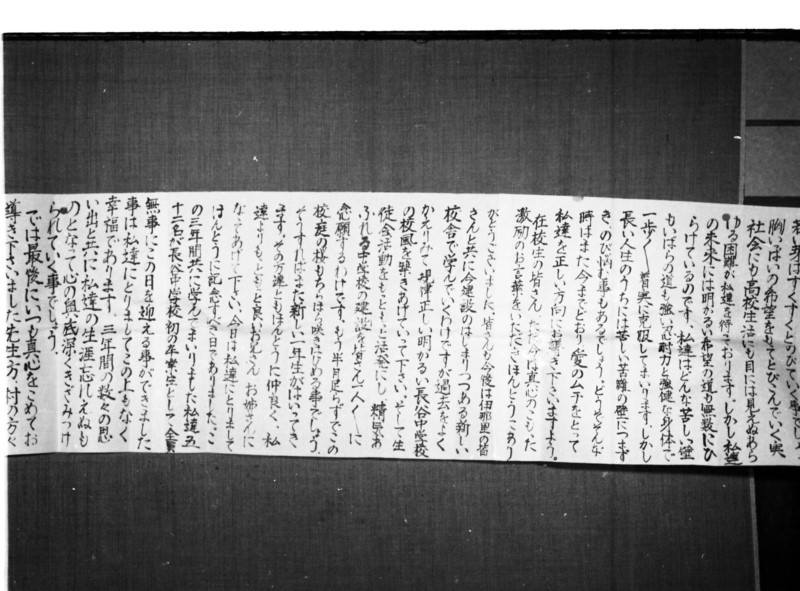 若い界はすくすくとのびていく事でしょう
胸いっぱいの希望をもってとびこんでいく実
社会にも高校生活にも目には見えぬあら
ゆる困難が私達を待ております。しかし私達
の未来には明かるい希望の道も無数にひ
らけているのです。私達はどんな苦しい壁
もいばらの道も強い忍耐力と強健な身体で
一歩く皆実に克服してまいります。しかし
長い人生のうちには苦しい苦難の壁につまず
き、のび悩む事もあるでしょう。どうぞそんな
時はまた今までどおり愛のムチをとって
私達を正しい方向に導き下さいますよう。
在校生の皆さん、ただ今は真心のこもった
激励のお言葉をいただきほんとうにあり
がとうございました。皆さんも今後は伊那里の皆
さんと共に今建設のはじまりつつある新しい
校舎で学んでいくわけですが過去をよく
かえりみて、規律正しい明かるい長谷中学校
の校風を築きあげていって下さい。そして生
徒会活動をもっともっと活発にし、精気あ
ふれる中学校の建設を皆さん一人く に
念願するわけです。もう半月足らずでこの
校庭の桜もちらほら咲きはじめる事でしょう。
そうすればまた新しい一年生がはいってき
ます。その方達ともほんとうに仲良く、私
達よりもっともっと良いお兄さんお姉さんに
なってあげて下さい。今日は私達にとりまして
ほんとうに記念すべき日でありました。こ
の三年間共に学んでまいりました私達五
十二名が長谷中学校初の卒業生として、全員
無事にこの日を迎える事ができました
事は私達にとりましてこの上もなく
幸福であります。三年間の数々の思
い出と共に私達の生涯忘れえぬも
のとなって心の奥底深くきざみつけ
られていく事でしょう。
では最後に、いつも真心をこめてお
導き下さいました先生方、村の方々